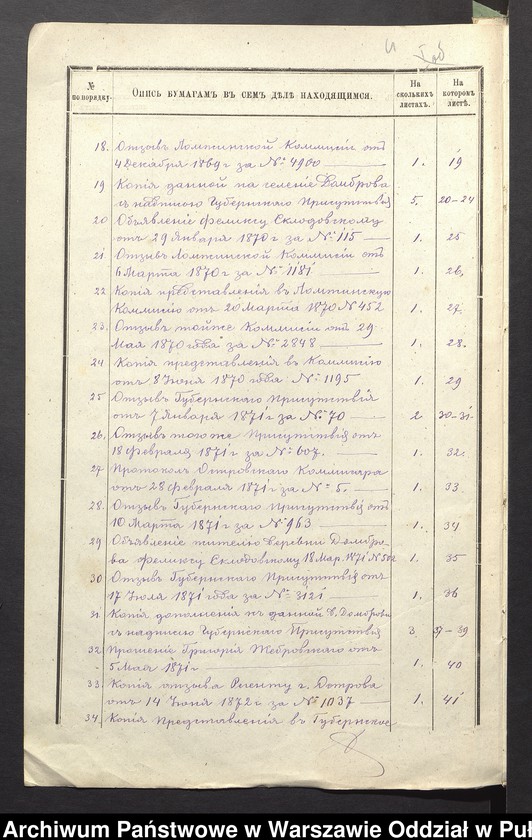 №
по порядку.
Опись бумагамъ въ семъ дѣлѣ находящимся.
На
сколькихъ
листахъ.
На
которомъ
листѣ.
18. Отзывъ Ломжинской Коммисіи отъ
4 Декабря 1869 г за № 4900 1. 19
19 Копія данной на селеніе Домброва
съ надписью Губернскаго Присутствія 5. 20-24
20 Объявленіе Феликсу Склодовскому
отъ 29 Января 1870 г за № 115 1. 25
21 Отзывъ Ломжинской Коммисіи отъ
6 Марта 1870 г за № 1181 1. 26.
22 Копія представленія въ Ломжинскую
Коммисію отъ 20 Марта 1870 № 452 1. 27.
23. Отзывъ тойже Коммисіи отъ 29
Мая 1870 года за № 2848 1. 28.
24 Копія представленія въ Коммисію
отъ 8 Іюня 1870 года № 1195 1. 29
25 Отзывъ Губернскаго Присутствія
отъ 7 Января 1871 г за № 70 2 30-31.
26. Отзывъ тогоже Присутствія отъ
18 Февраля 1871 г за № 607. 1. 32.
27 Протоколъ Островскаго Коммисара
отъ 28 Февраля 1871 г за № 5. 1. 33
28. Отзывъ Губернскаго Присутствія отъ
10 Марта 1871 г за № 963 1. 34
29 Объявленіе жителю деревни Домбро-
ва Феликсу Склодовскому 18 Мар. 1871 № 1. 35
30 Отзывъ Губернскаго Присутствія отъ
17 Іюля 1871 года за № 3121 1. 36
31. Копія дополненія къ данной с. Домбровы
съ надписью Губернскаго Присутствія 3. 37-39
32. Прошеніе Григорія Жебровскаго отъ
5 Мая 1871 г 1. 40
33. Копія отзыва Регенту г. Острова
отъ 14 Іюня 1872 г за № 1037 1. 41
34. Копія Представленія въ Губернское
Archiwum Państwowe w Warszawie Oddział w Puł